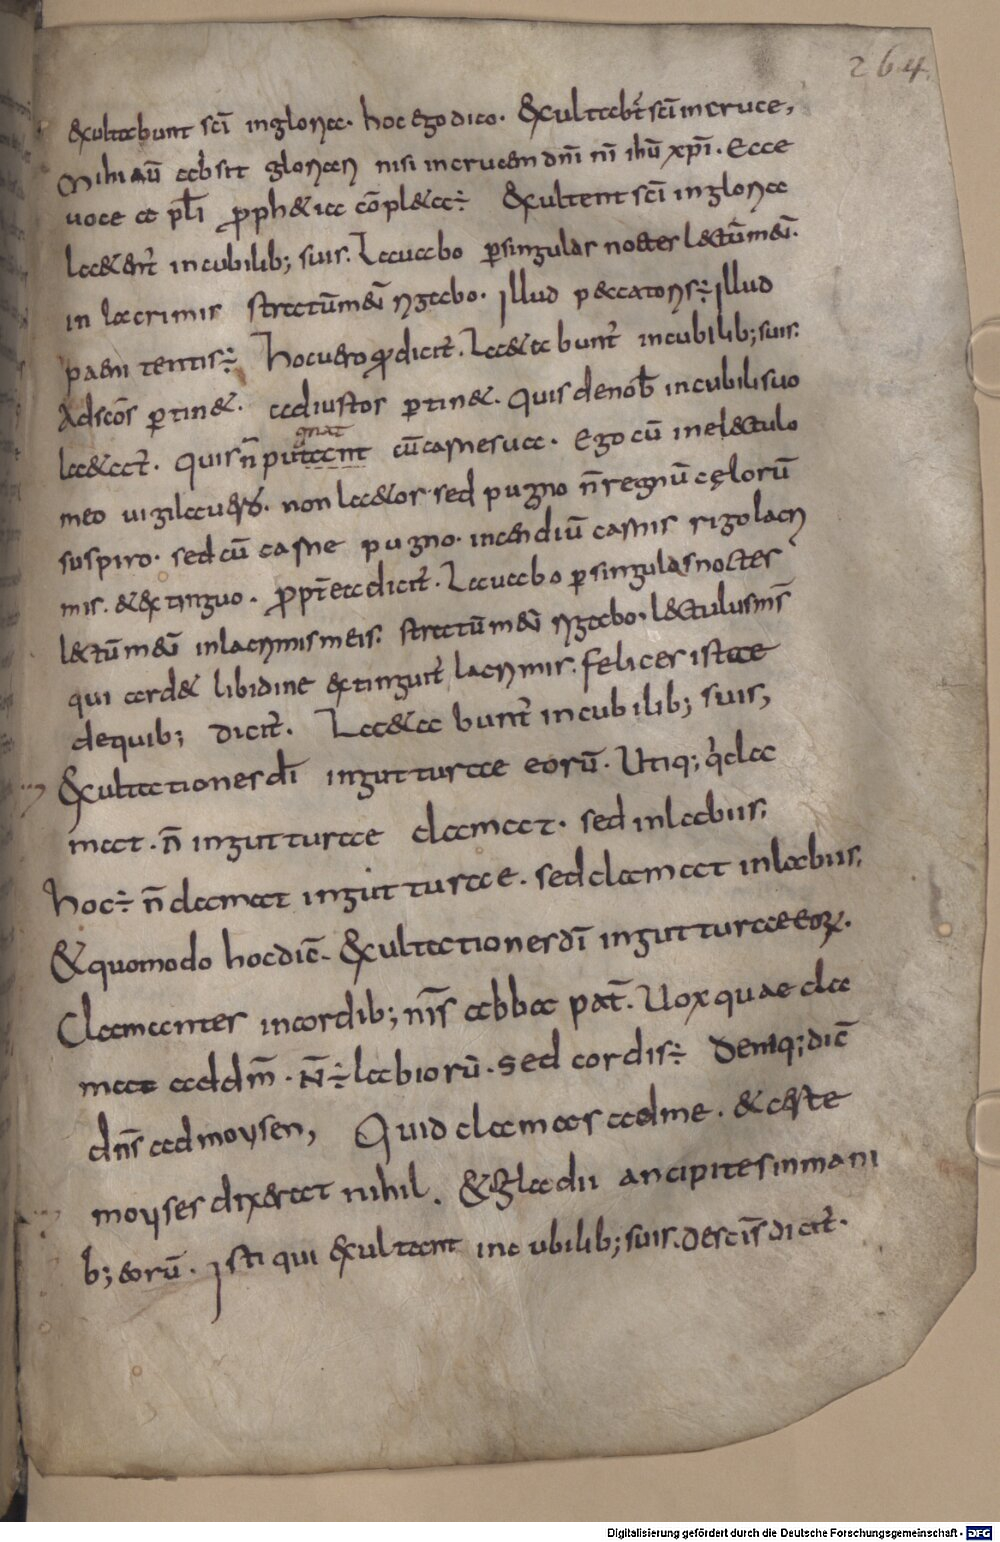 264.
exultabunt scī in gloria. hoc ego dico. exultab̄t scī in cruce,
Mihi aū absit gloriari nisi in crucem dn̄i nr̄i ihū xp̄i. Ecce
uoce et
prophetia cōpleta ÷ exultent scī in gloria
in cubilib; suis. Lauabo per singulas noctes lectū meū.
in lacrimis stratū meū rigabo. illud peccatoris ÷ illud
paenitentis ÷ Hoc uero quod dicit. Laetabunt̄ in cubilib; suis.
Ad sc̄os ꝑtinet. ad iustos ꝑtinet. Quis de nob̄ in cubili suo
laetat̄. Quis n̄ putant cū carne sua. Ego cū in lectulo
pugnat
meo non laetor sed pugno n̄ regnū cęlorū
suspiro. sed cū carne pugno. incendiū carnis rigo lacri
mis. & extinguo. ꝓpt̄ea dicit. Lauabo ꝑ singulas noctes
lectū meū in lacrimis meis. stratū meū rigabo. lectulus m̄s
qui ardet libidine extinguit̄ lacrimis. felices istae
de quib; dicit̄. Laetabunt̄ in cubilib; suis,
Exultationes dī in gutturae eorū. Utiq; qͥ cla
mat. n̄ in gutturae clamat. sed in labiis.
Hoc ÷ n̄ clamat in gutturae. sed clamat in labiis.
& quomodo hoc dic̄. Exultationes dī in gutturae eoꝝ.
Clamantes in cordib; nr̄is abba pat̄. Uox quae cla
mat ad dm̄. N̄ ÷ labiorū. sed cordis ÷ Deniq; dic̄
dn̄s ad moysen, Quid clamas ad me. & certe
moyses dixerat nihil. & gladii ancipites in mani
b; eorū. isti qui exultant in cubilib; suis. de sc̄is dicit̄.
Digitalisierung gefördert durch die Deutsche Forschungsgemeinschaft - DFG